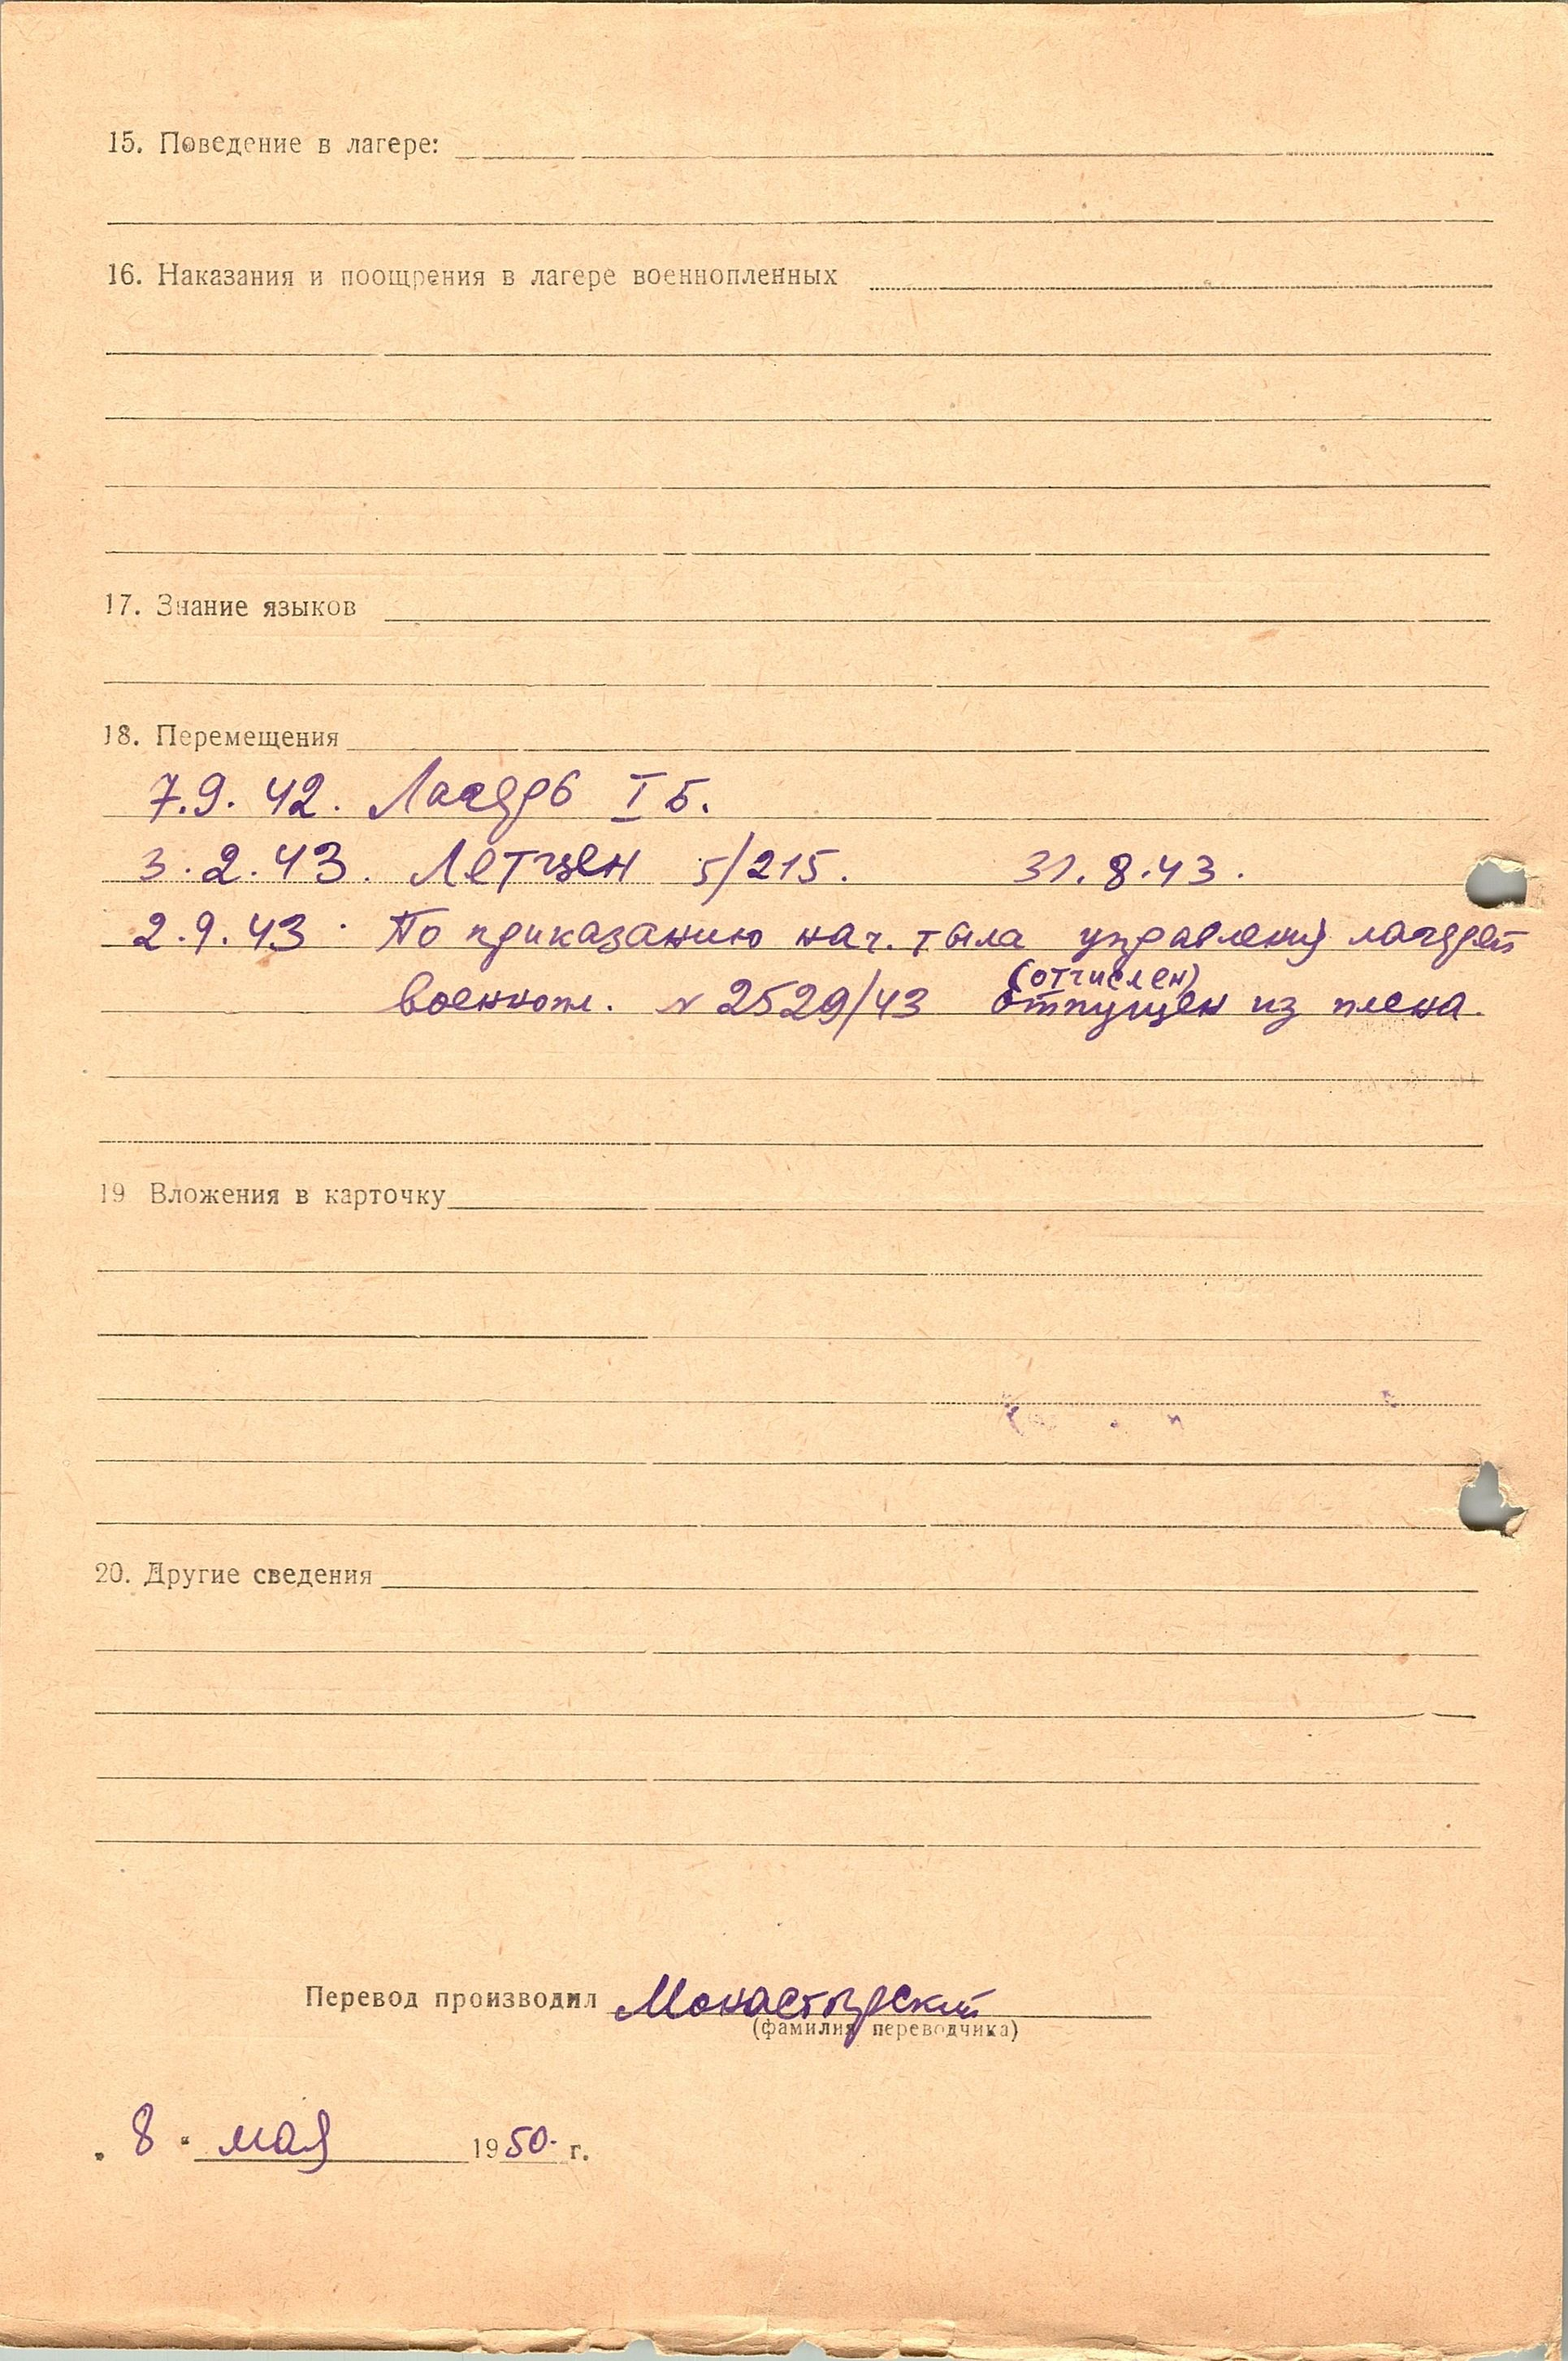 15. Поведение в лагере:
16. Наказания и поощрения в лагере военнопленных
17. Знание языков
18. Перемещения
7.9.42. Лагерь I Б.
3.2.43. Летцен 5/215. 31.8.43.
2.9.43. По приказанию нач. тыла управления лагерей
(отчислен)
военнопл. № 2529/43 отпущен из плена.
19 Вложения в карточку
20. Другие сведения
Перевод производил Монастырский
(фамилия переводчика)
„8“ мая 1950 г.